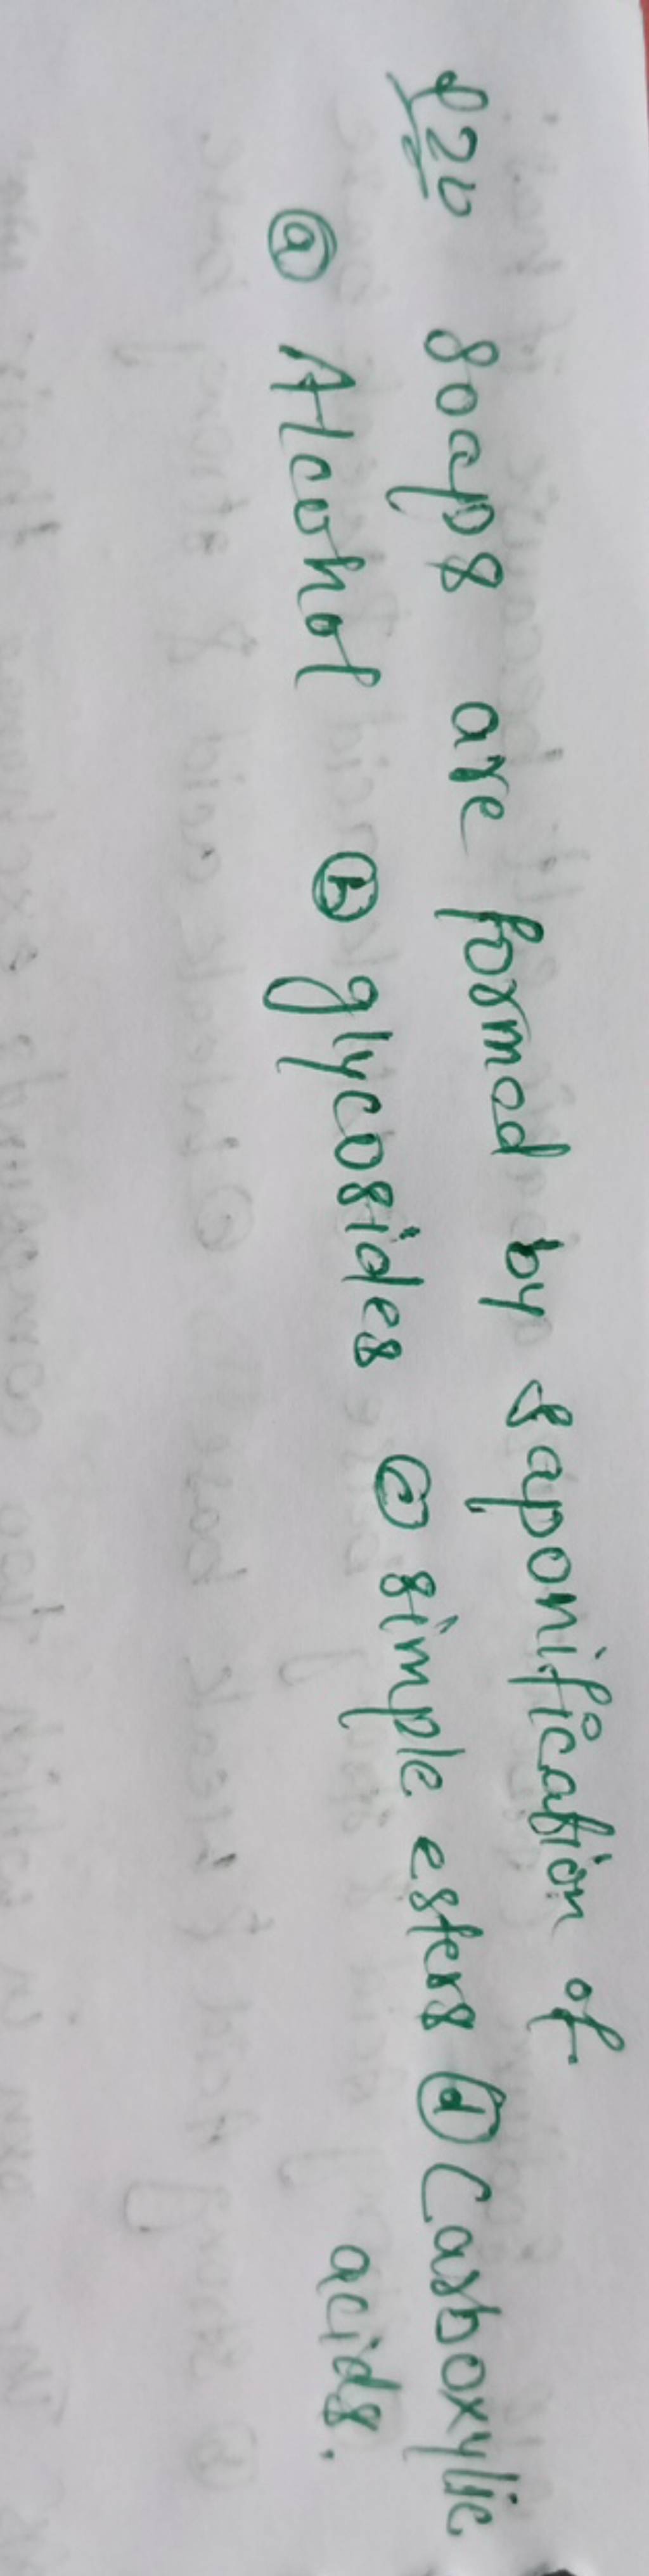 Q26 Soaps are formed by saponification of
(a) Alcohol (b) glycosides (c) simple esters (d) Carboxylic
acids.